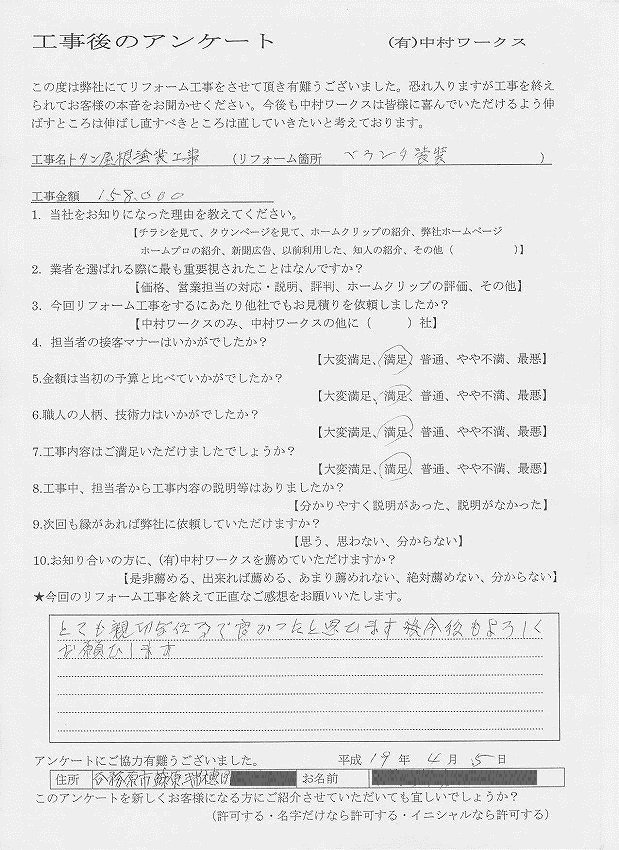 工事後のアンケート (有)中村ワークス
この度は弊社にてリフォーム工事をさせて頂き有難うございました。恐れ入りますが工事を終え
られてお客様の本音をお聞かせください。今後も中村ワークスは皆様に喜んでいただけるよう伸
ばすところは伸ばし直すべきところは直していきたいと考えております。
工事名トタン屋根塗装工事 (リフォーム箇所 ベランダ塗装 )
工事金額 158,000
1. 当社をお知りになった理由を教えてください。
【チラシを見て、タウンページを見て、ホームクリップの紹介、弊社ホームページ
ホームプロの紹介、新聞広告、以前利用した、知人の紹介、その他（ ）】
2. 業者を選ばれる際に最も重要視されたことはなんですか？
【価格、営業担当の対応・説明、評判、ホームクリップの評価、その他】
3. 今回リフォーム工事をするにあたり他社でもお見積りを依頼しましたか？
【中村ワークスのみ、中村ワークスの他に（ ）社】
4. 担当者の接客マナーはいかがでしたか？
【大変満足、満足、普通、やや不満、最悪】
5.金額は当初の予算と比べていかがでしたか？
【大変満足、満足、普通、やや不満、最悪】
6.職人の人柄、技術力はいかがでしたか？
【大変満足、満足、普通、やや不満、最悪】
7.工事内容はご満足いただけましたでしょうか？
【大変満足、満足、普通、やや不満、最悪】
8.工事中、担当者から工事内容の説明等はありましたか？
【分かりやすく説明があった、説明がなかった】
9.次回も縁があれば弊社に依頼していただけますか？
【思う、思わない、分からない】
10.お知り合いの方に、(有)中村ワークスを薦めていただけますか？
【是非薦める、出来れば薦める、あまり薦めれない、絶対薦めない、分からない】
★今回のリフォーム工事を終えて正直なご感想をお願いいたします。
とても親切な仕事で良かったと思います 今後もよろしく
お願いします
アンケートにご協力有難うございました。 平成 19 年 4 月 5 日
住所 各務原市蘇原瑞穂町 お名前
このアンケートを新しくお客様になる方にご紹介させていただいても宜しいでしょうか？
（許可する・名字だけなら許可する・イニシャルなら許可する）